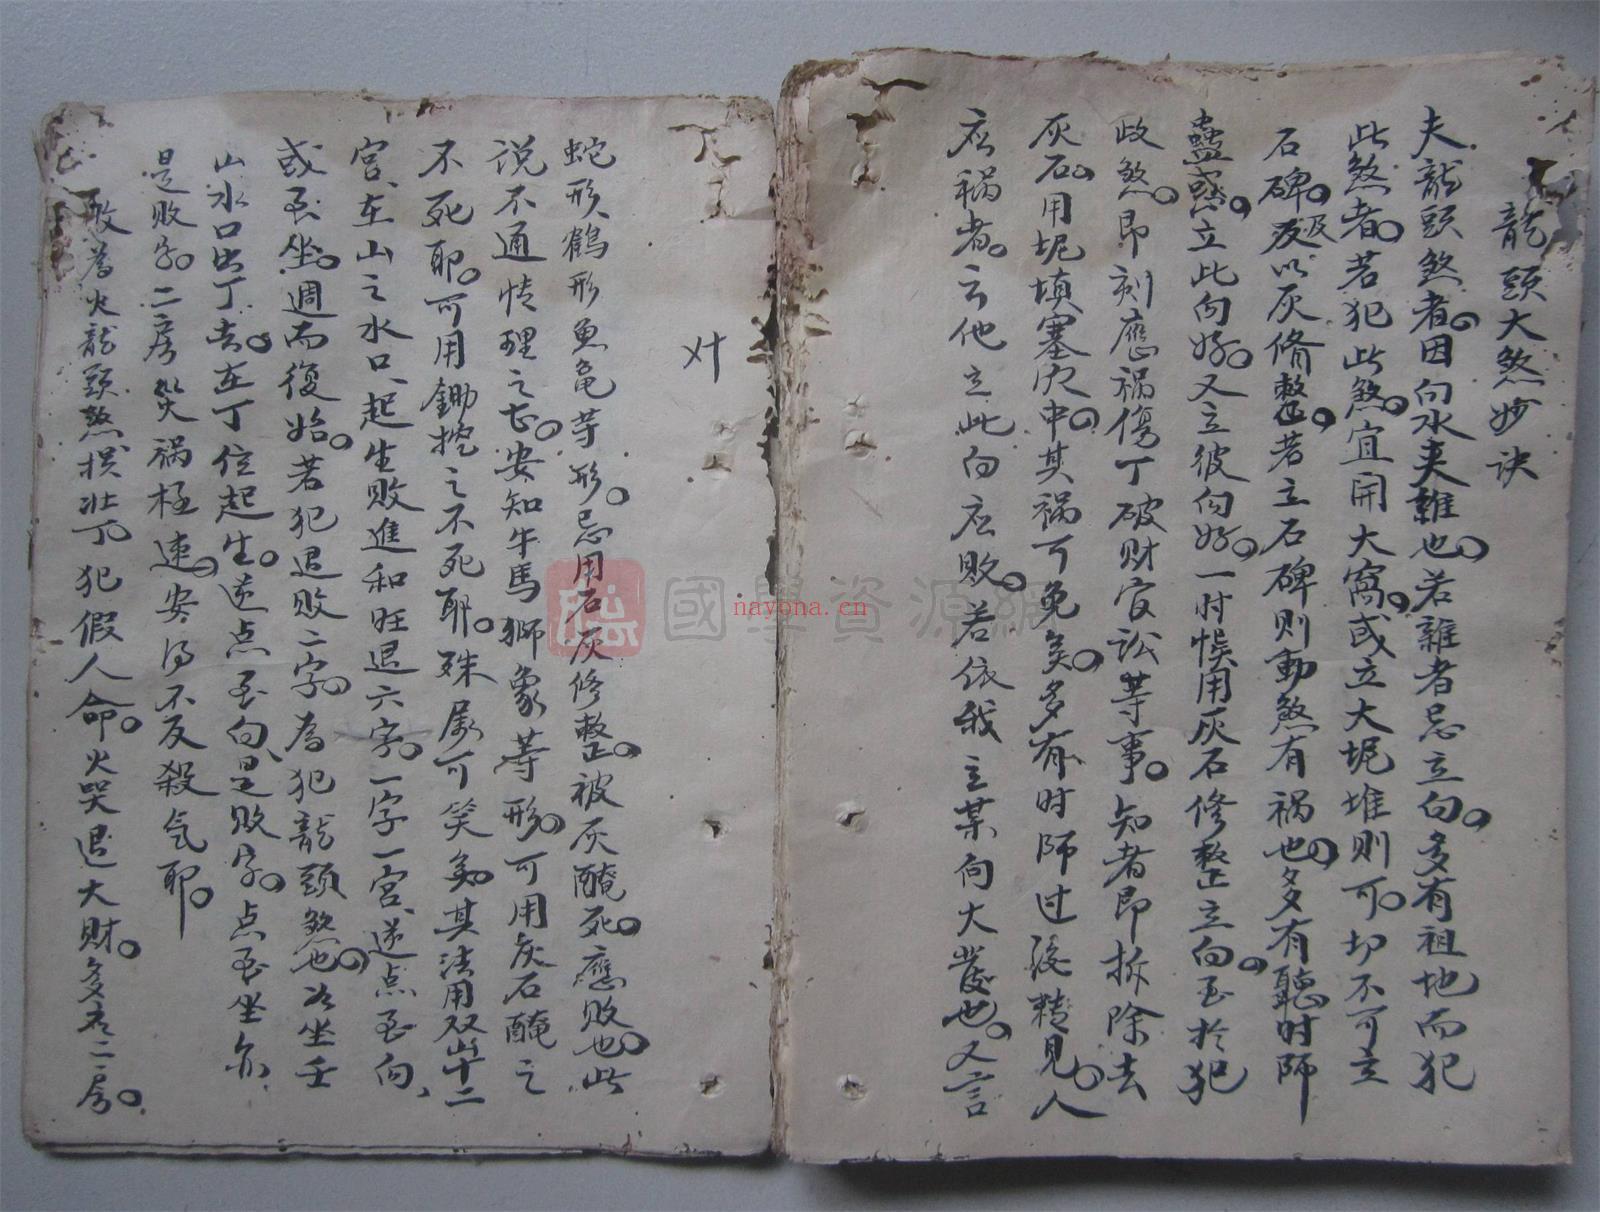 龍頭大煞妙诀
夫龍頭煞者。因向水夹雜也。若雜者忌立向。多有祖地而犯
此煞者。若犯此煞。宜開大窩。或立大坭堆则可。切不可立
石碑。及以灰脩整。若立石碑则動煞有祸也。多有聽时師
蠱惑。立此向好。又立彼向好。一时悮用灰石修整立向。至於犯
此煞。即刻應祸傷丁破财官讼等事。知者即拆除去
灰石。用坭填塞穴中。其祸可免矣。多有时师过後精見。人
应祸者。云他立此向应败。若依我立某向大發也。又言
蛇形鶴形魚龟等形。忌用石灰修整。被灰醃死。應败也。此
说不通情理之甚。安知牛馬獅象等形。可用灰石醃之
不死耶。可用鋤挖之不死耶。殊屬可笑矣。其法用双山十二
宫、在山之水口、起生败進和旺退六字。一字一宫、逆点至向、
或至坐。週而復始。若犯退败二字。為犯龍頭煞也。如坐壬
山水口出丁去。在丁位起生。逆点至向、是败字。点至坐亦
是败字。二房災祸極速。安得不反殺气耶。
败為火龍頭煞損壯丁。犯假人命。火哭退大财。多在二房。
國學資源網
nayona.cn